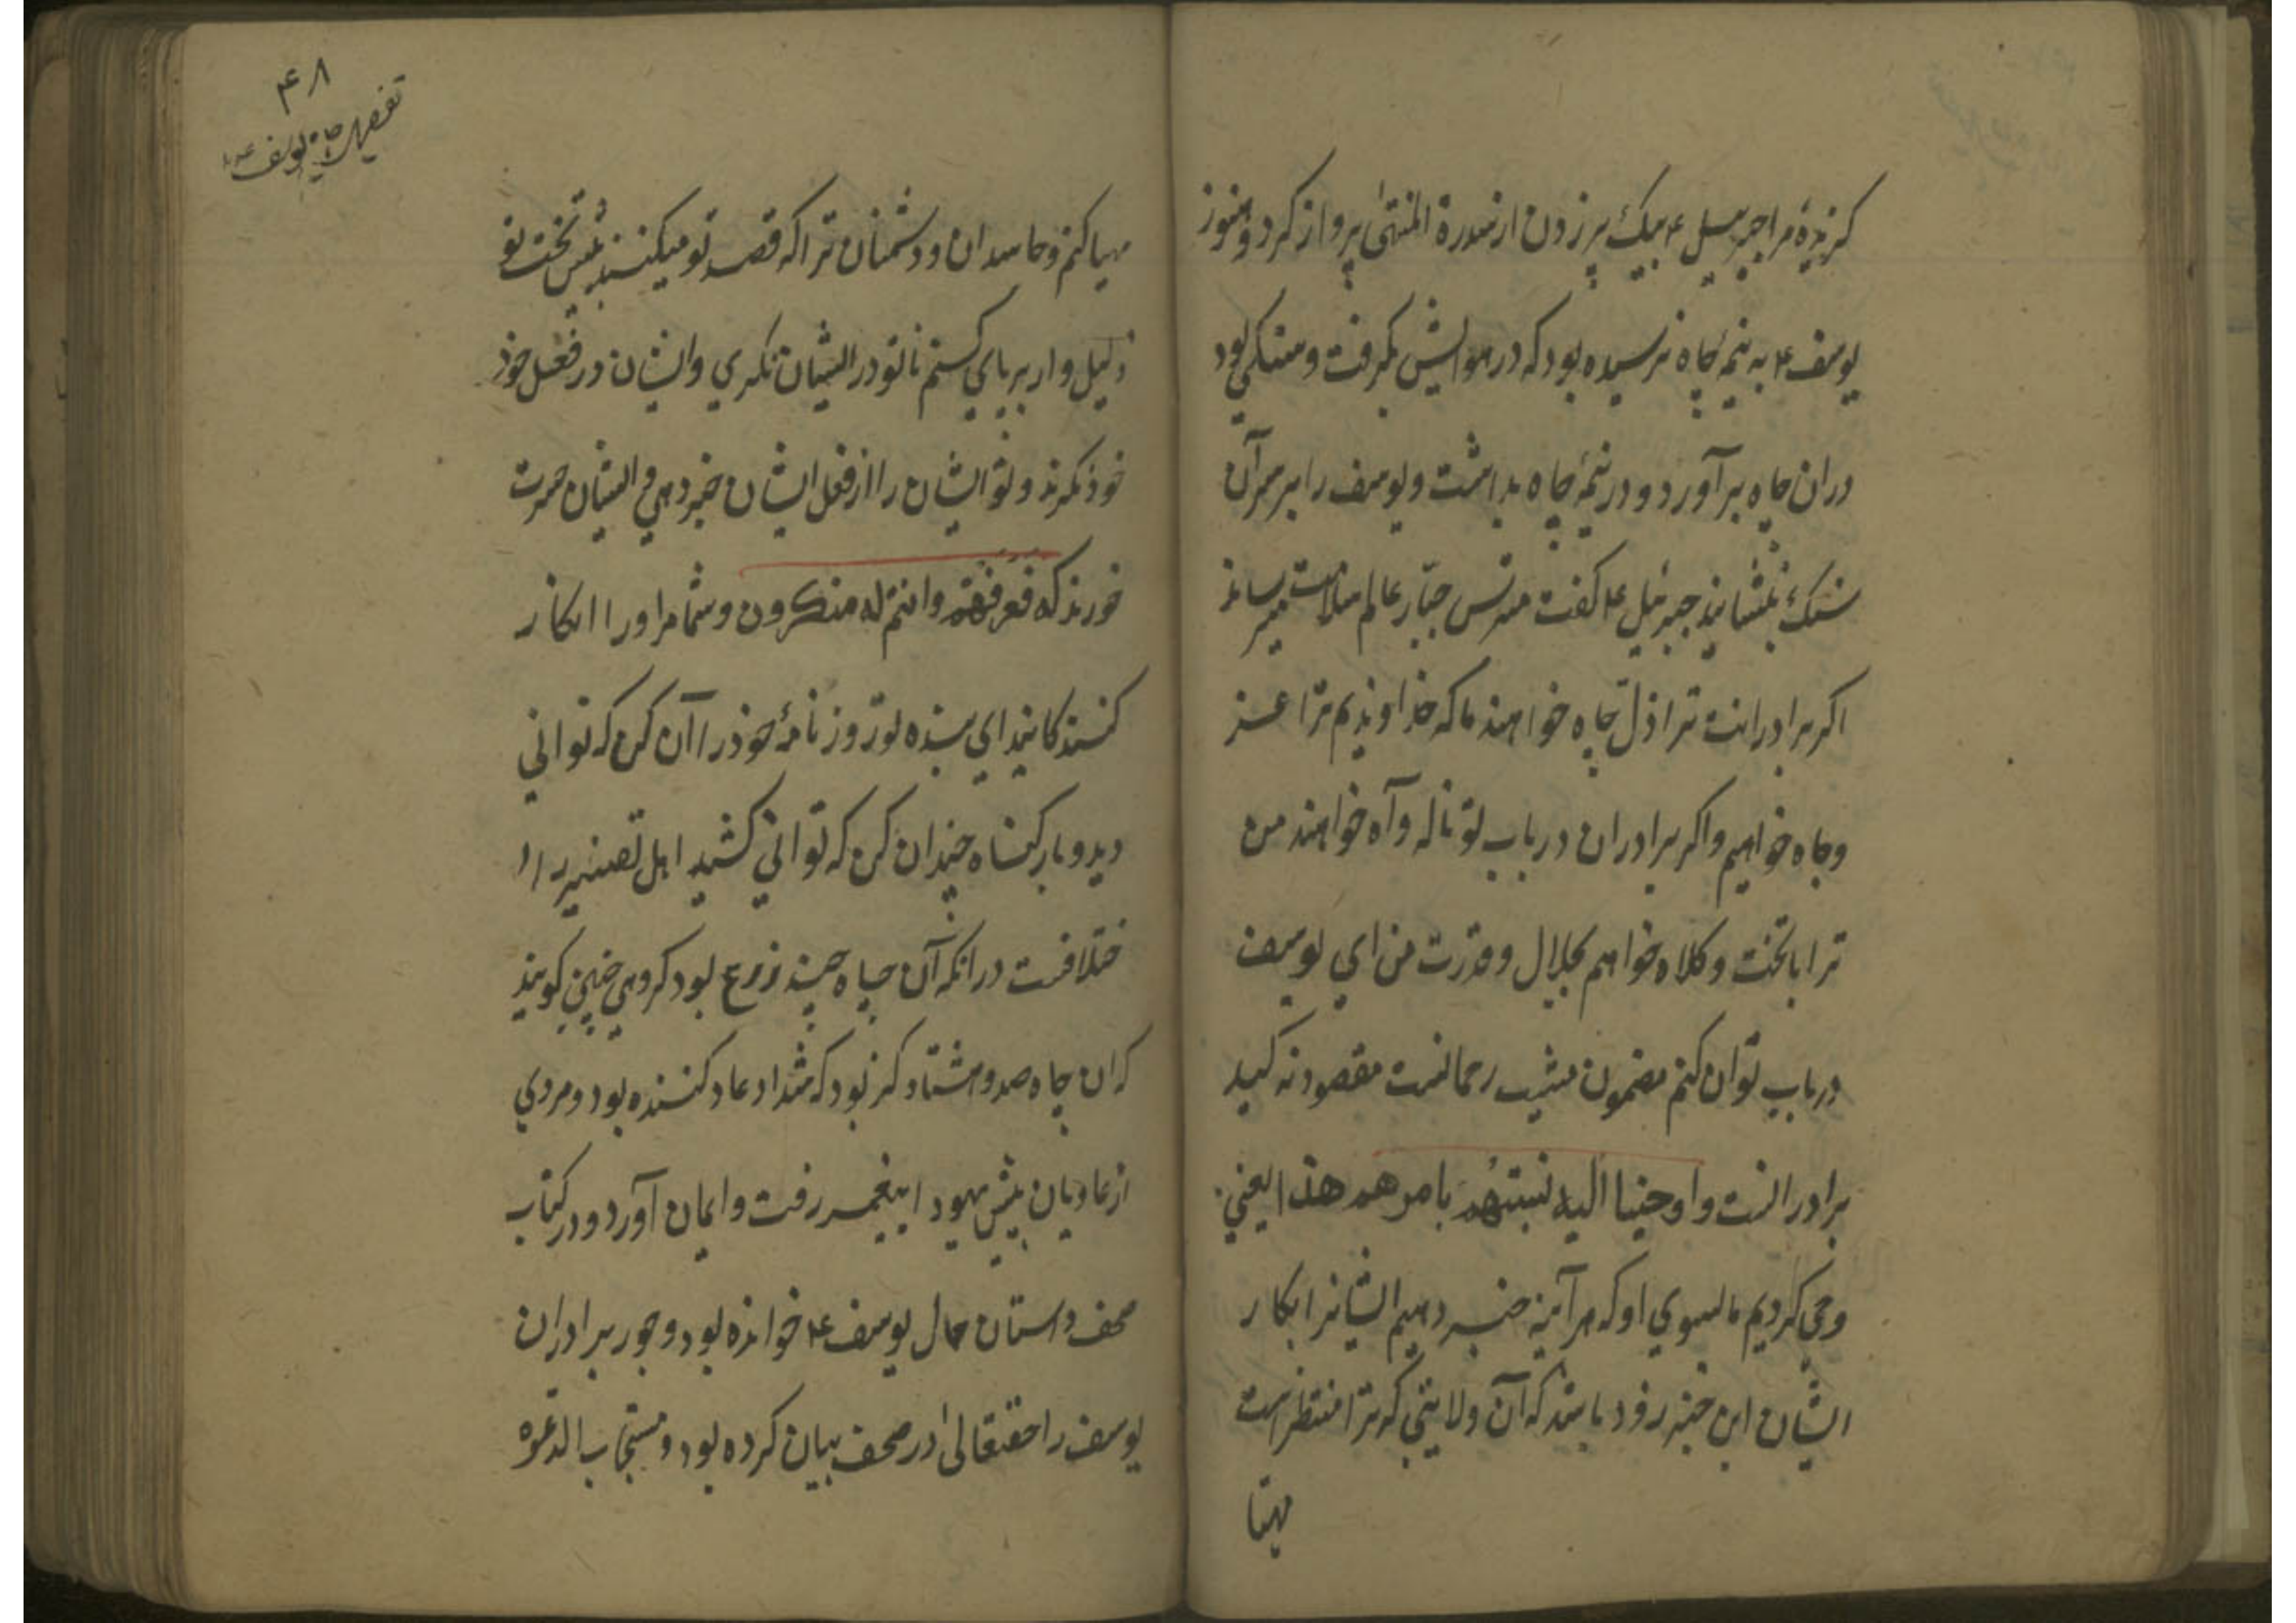 کزیدهٔ مرا جبرییل ع بیک پر زدن از سدرة المنتهیٰ پرواز کرد و هنوز
یوسف ع به نیمهٔ چاه نرسیده بود که در هوایش بکرفت و سنکی بود
دران چاه برآورد و در نیمهٔ چاه بداشت و یوسف را بر سر آن
سنک بنشانید جبرئیل ع کفت مترس جبّار عالم سلامت میرساند
اکر برادرانت ترا ذلّ چاه خواهند ما که خداوندیم ترا عز
وجاه خواهیم و اکر برادران در باب تو ناله و آه خواهند من
ترا با تخت و کلاه خواهم بجلال و قدرت من ای یوسف
در باب تو ان کنم مضمون مشیت رحمانست مقصود نه کید
برادرانست و اوحینا الیه لتنبئنهم بامرهم هذا یعنی
وحی کردیم ما بسوی او که هر آینه خبر دهیم ایشانرا بکار
ایشان این خبر رفود باشد که آن ولایتی که ترا منتظر است
مهیا
۴۸
تفسیر سورة یوسف ع
مهیا کنم و حاسدان و دشمنان ترا که قصد تو میکنند پیش تخت تو
ذلیل وار بر پای کنم تا تو در ایشان نکری و ایشان در فعل خود
خود نکرند و تو ایشان را از فعل ایشان خبر دهی و ایشان حسرت
خورند که فعرفهم وانتم له منکرون و شما مر او را انکار
کنندکانید ای بنده تو روزنامهٔ خود را آن کن که توانی
دید و بار کناه چندان کن که توانی کشید اهل تفسیر را
ختلافست در انکه آن چاه چند ذرع بود کروهی چنین کویند
که ان چاه صد و هشتاد کز بود که شداد عاد کننده بود و مردی
از عادیان پیش هود ا پیغمبر رفت و ایمان آورد و در کتاب
صحف داستان حال یوسف ع خوانده بود و جور برادران
یوسف را حقتعالیٰ در صحف بیان کرده بود و مستجاب الدعوه